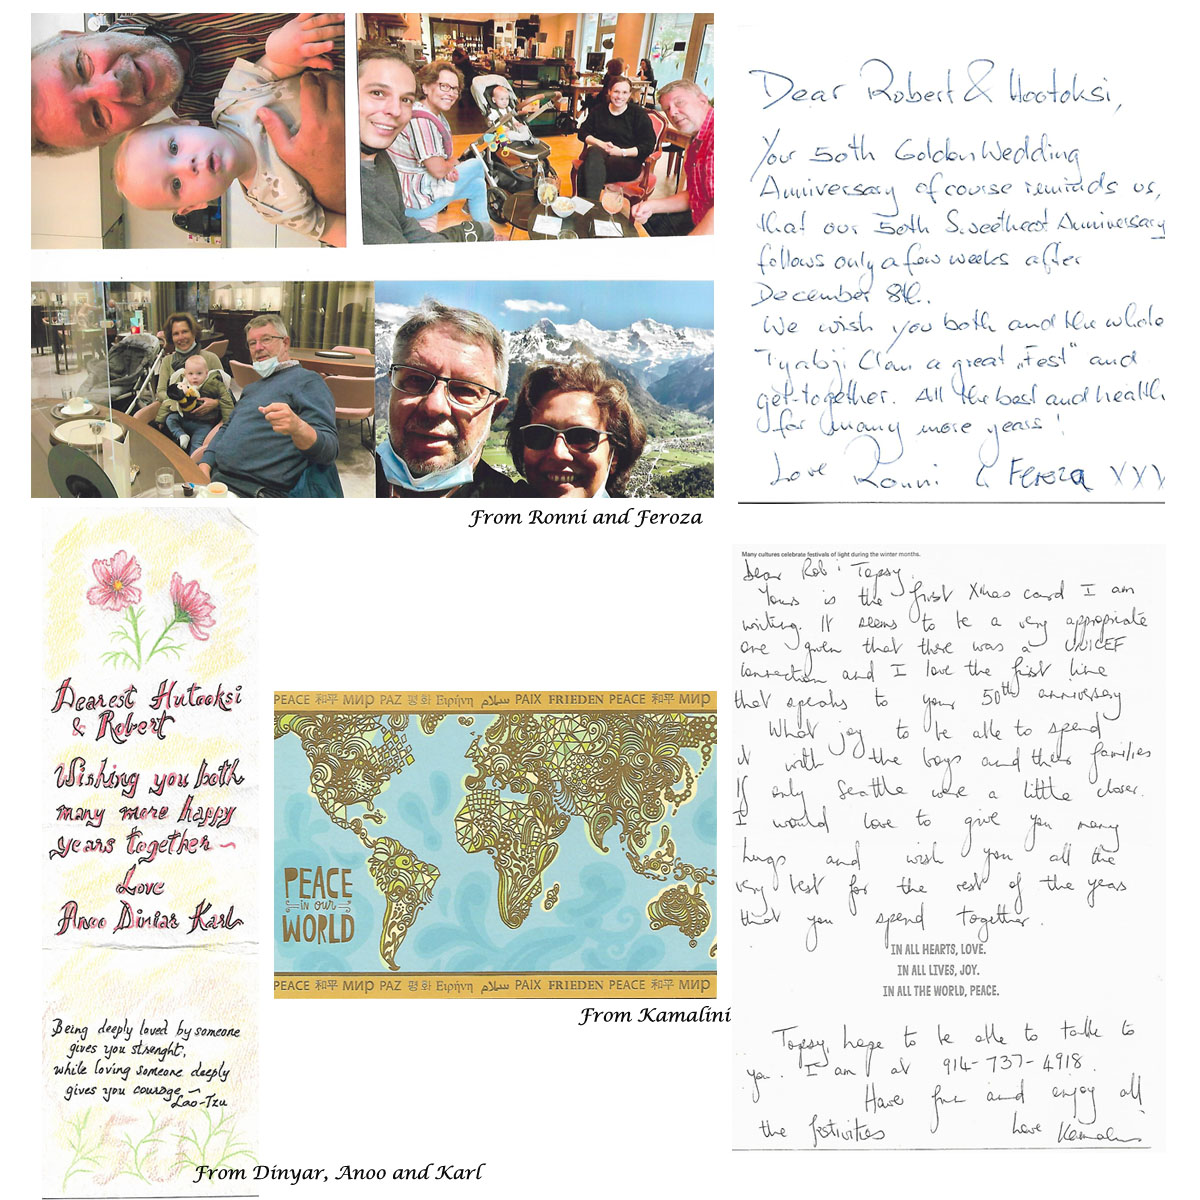 Dear Robert & Hootoksi,
Your 50th Golden Wedding
Anniversary of course reminds us,
that our 50th Sweetheart Anniversary
follows only a few weeks after
December 8th.
We wish you both and the whole
Tyabji Clan a great „Fest“ and
get-together. All the best and health
for many more years!
Love Ronni & Feroza XXX
From Ronni and Feroza
Dearest Hutoksi
& Robert
Wishing you both
many more happy
years together ~
Love
Anoo Diniar Karl
Being deeply loved by someone
gives you strenght,
while loving someone deeply
gives you courage ~
Lao-Tzu
50
From Dinyar, Anoo and Karl
PEACE 和平 МИР PAZ 평화 Ειρήνη سلام PAIX FRIEDEN PEACE 和平 МИР
PEACE
in our
WORLD
PEACE 和平 МИР PAZ 평화 Ειρήνη سلام PAIX FRIEDEN PEACE 和平 МИР
From Kamalini
Many cultures celebrate festivals of light during the winter months.
Dear Rob & Topsy,
Yours is the first Xmas card I am
writing. It seems to be a very appropriate
one given that there was a UNICEF
connection and I love the first line
that speaks to your 50th anniversary
What joy to be able to spend
it with the boys and their families
If only Seattle were a little closer.
I would love to give you many
hugs and wish you all the
very best for the rest of the years
that you spend together.
IN ALL HEARTS, LOVE.
IN ALL LIVES, JOY.
IN ALL THE WORLD, PEACE.
Topsy, hope to be able to talk to
you. I am at 914-737-4918.
Have fun and enjoy all
the festivities Love Kamalini